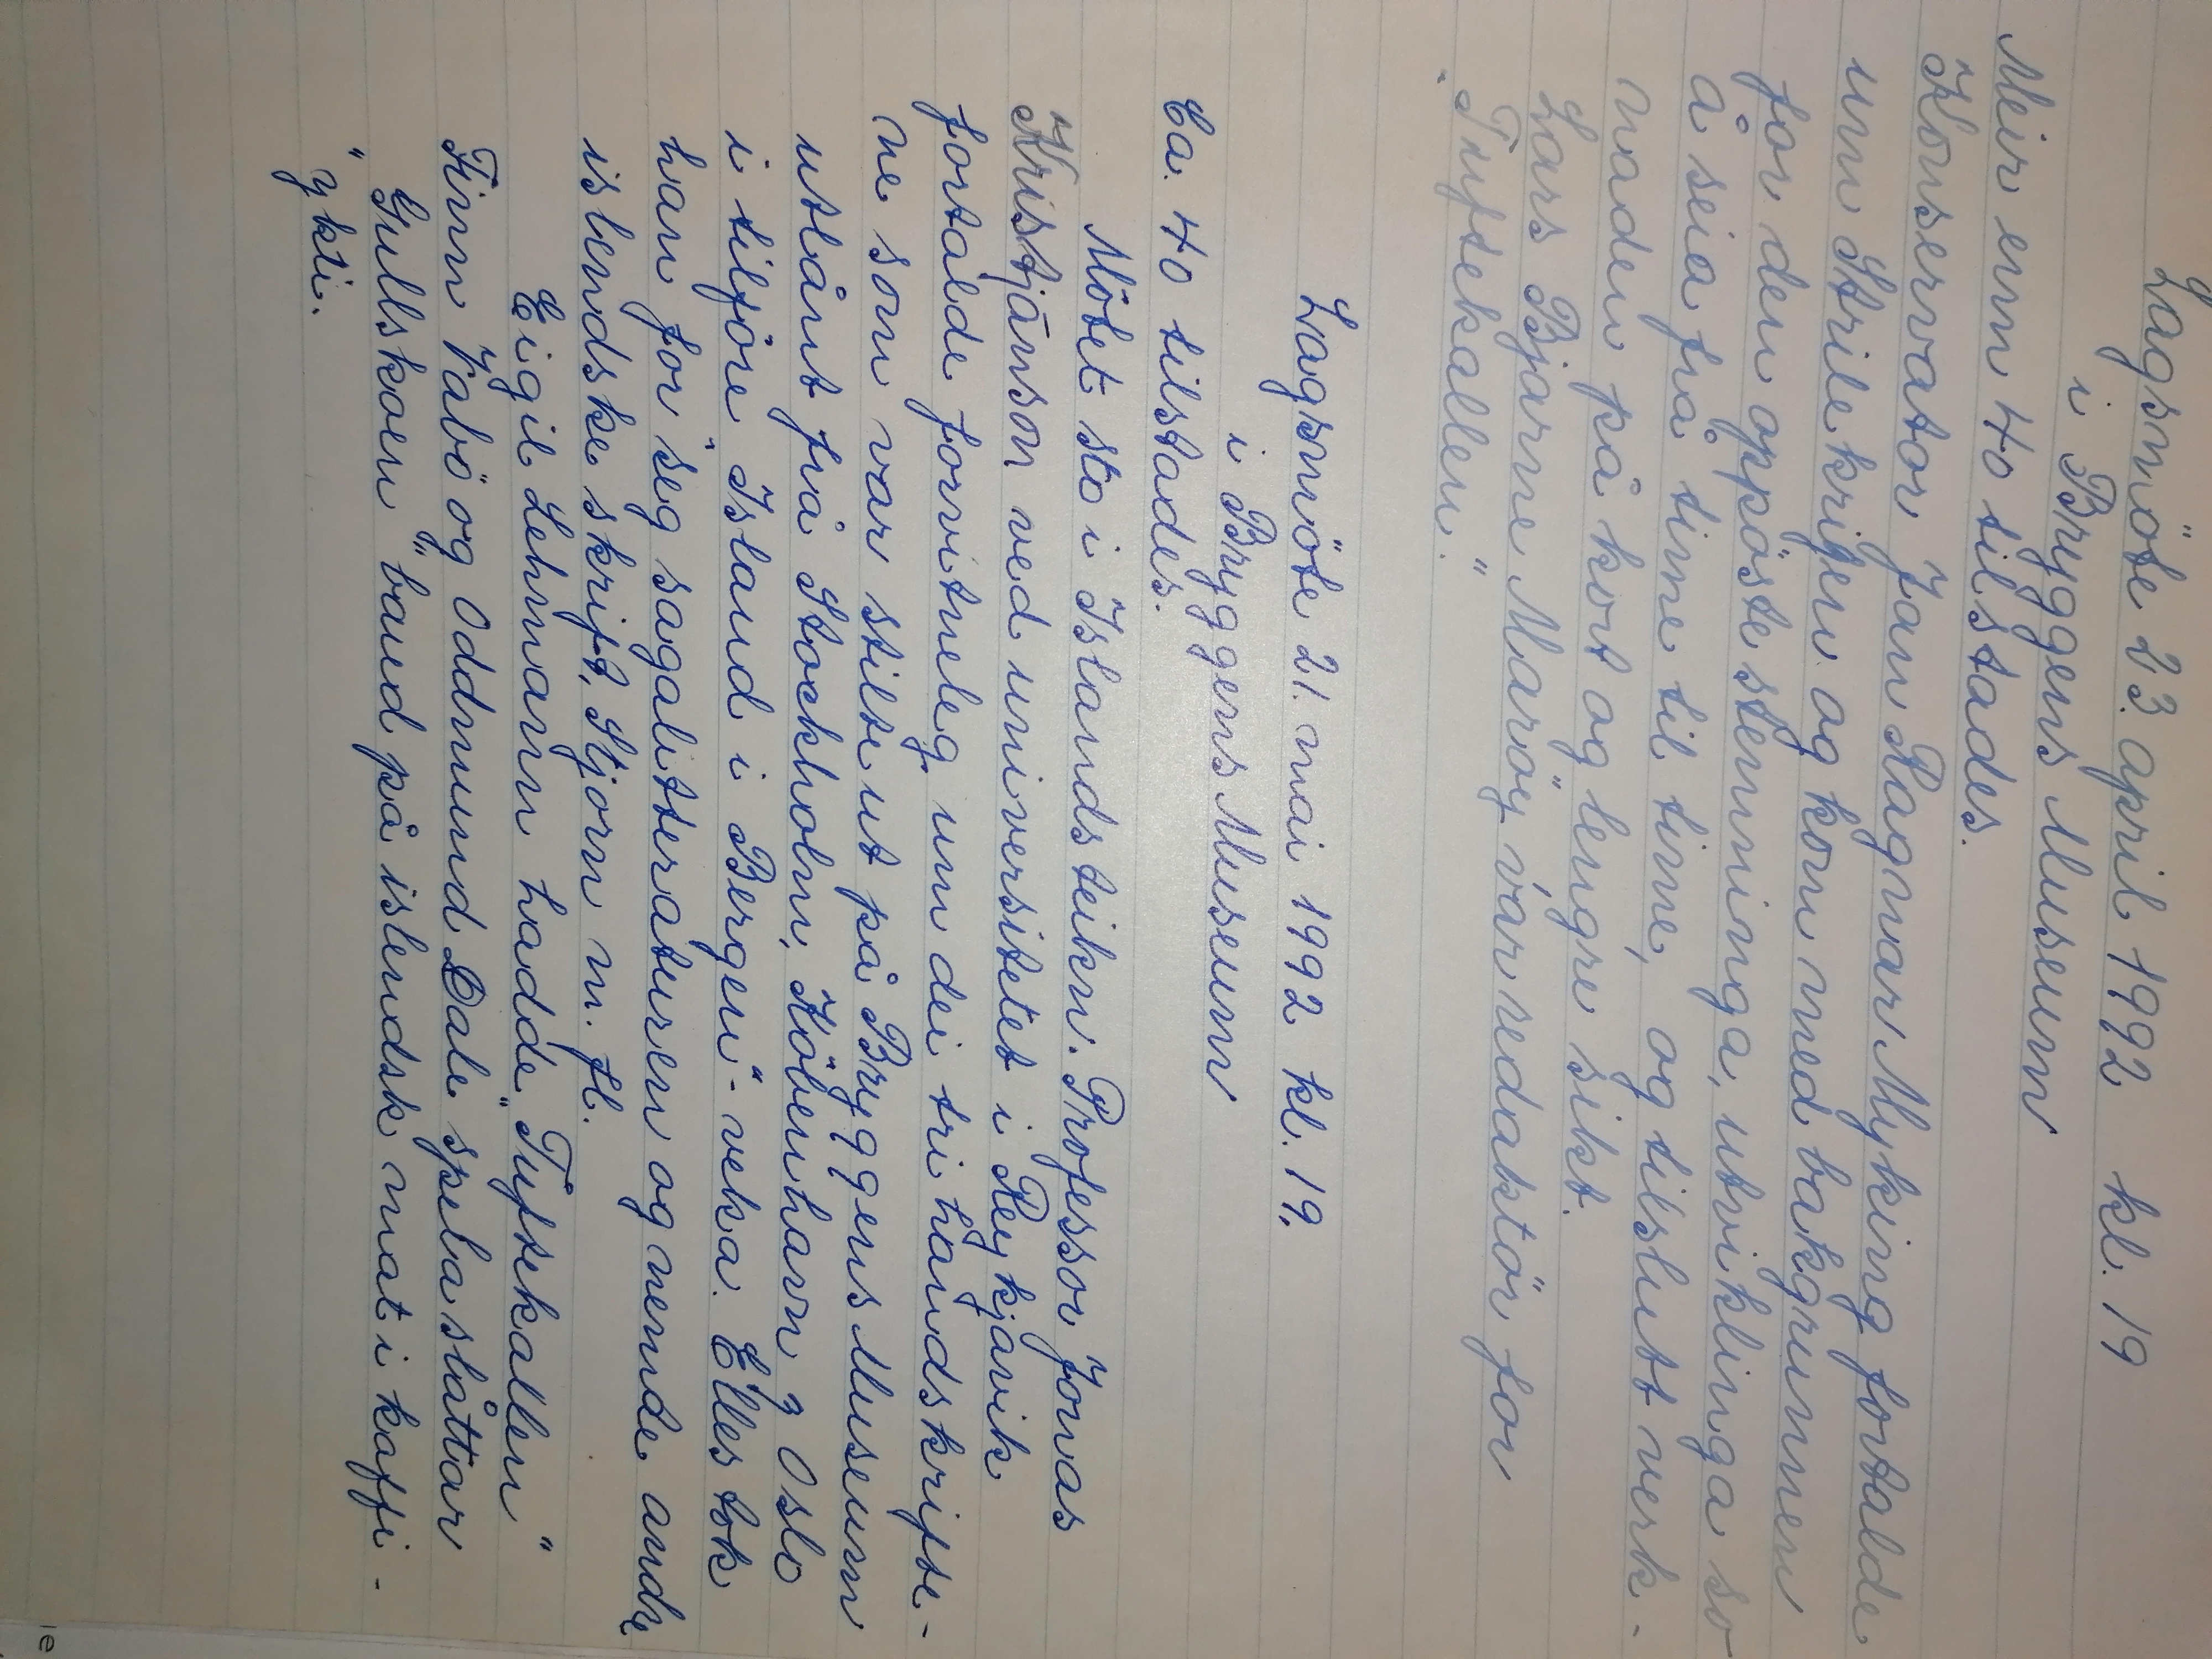 Lagsmöte 23. april 1992 kl. 19
i Bryggens Museum
Meir enn 40 tilstades.
Konservator Jan Ragnar Myking fortalde
um Strilekrigen og kom med bakgrunnen
for den oppöste stemninga, utviklinga so
å seia frå time til time, og tilslutt verk-
naden på kort og lengre sikt.
Lars Bjarne Maröy var redaktör for
"Tuftekallen."
Lagsmöte 21. mai 1992 kl. 19.
i Bryggens Museum
Ca. 40 tilstades.
Mötet sto i Islands teikn. Professor Jonas
Kristjánson ved universitetet i Reykjavik
fortalde forvitneleg um dei tri handskrifte-
ne som var stilt ut på Bryggens Museum
utlånt frå Stockholm, Köbenhavn og Oslo
i tilföre "Island i Bergen"-veka. Elles tok
han for seg sagalitteraturen og nemde andre
islendske skrift, Stjorn m. fl.
Eigil Lehmann hadde "Tuftekallen"
Finn Vabö og Oddmund Dale spela slåttar
"Gullskoen" baud på islendsk mat i kaffi-
ykti.
ie